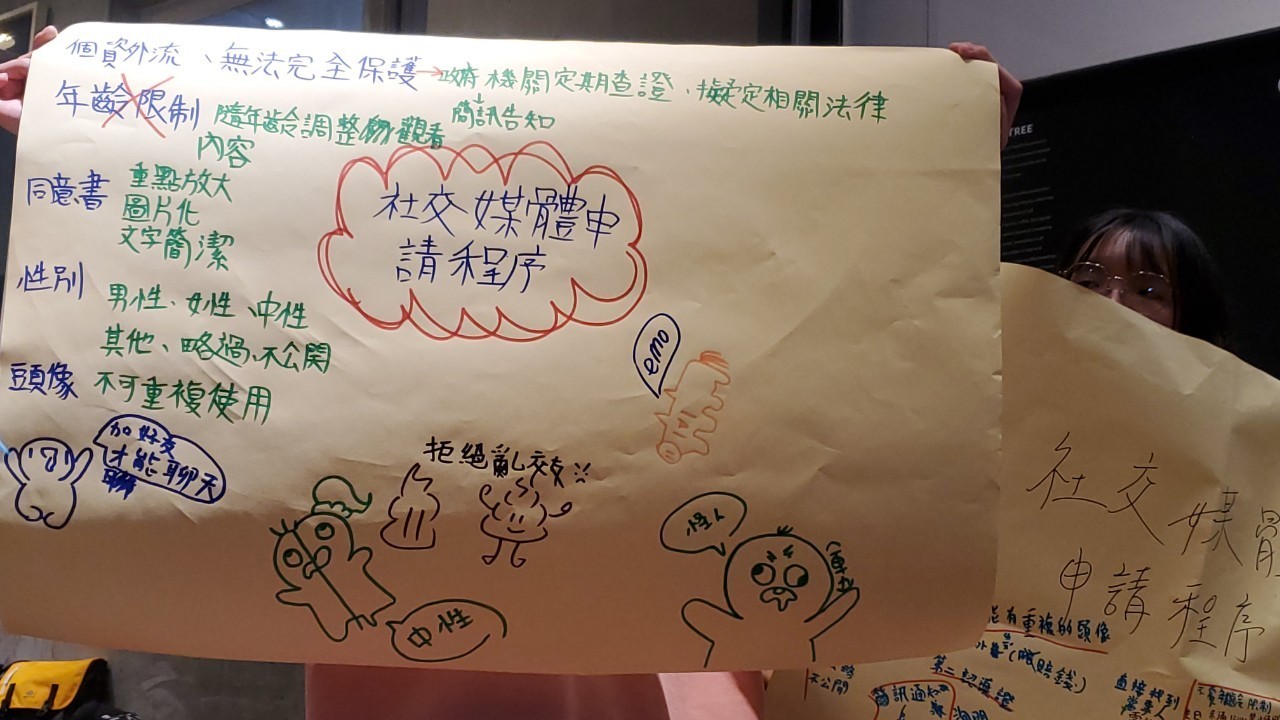 個資外流、無法完全保護→政府機關定期查證、擬定相關法律
簡訊告知
年齡限制 隨年齡調整觀看
內容
同意書 重點放大
圖片化
文字簡潔
性別 男性、女性、中性
其他、略過、不公開
頭像 不可重複使用
社交媒體申
請程序
emo
加好友
才能聊天
拒絕亂交友
中性
怪人
TREE
社交媒體
申請程序
有重複的頭像
第二
不公開
簡訊通知
直接找到